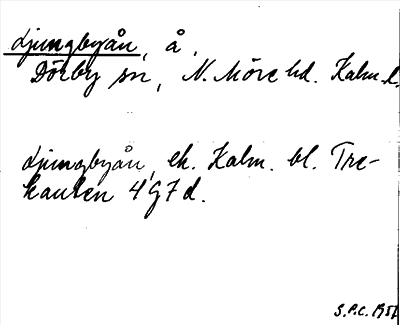 Ljungbyån, å,
Dörby sn, N. Möre hd. Kalm. l.
Ljungbyån, ek. Kalm. bl. Tre-
kanten 4G7d.
S.P.C. 1957